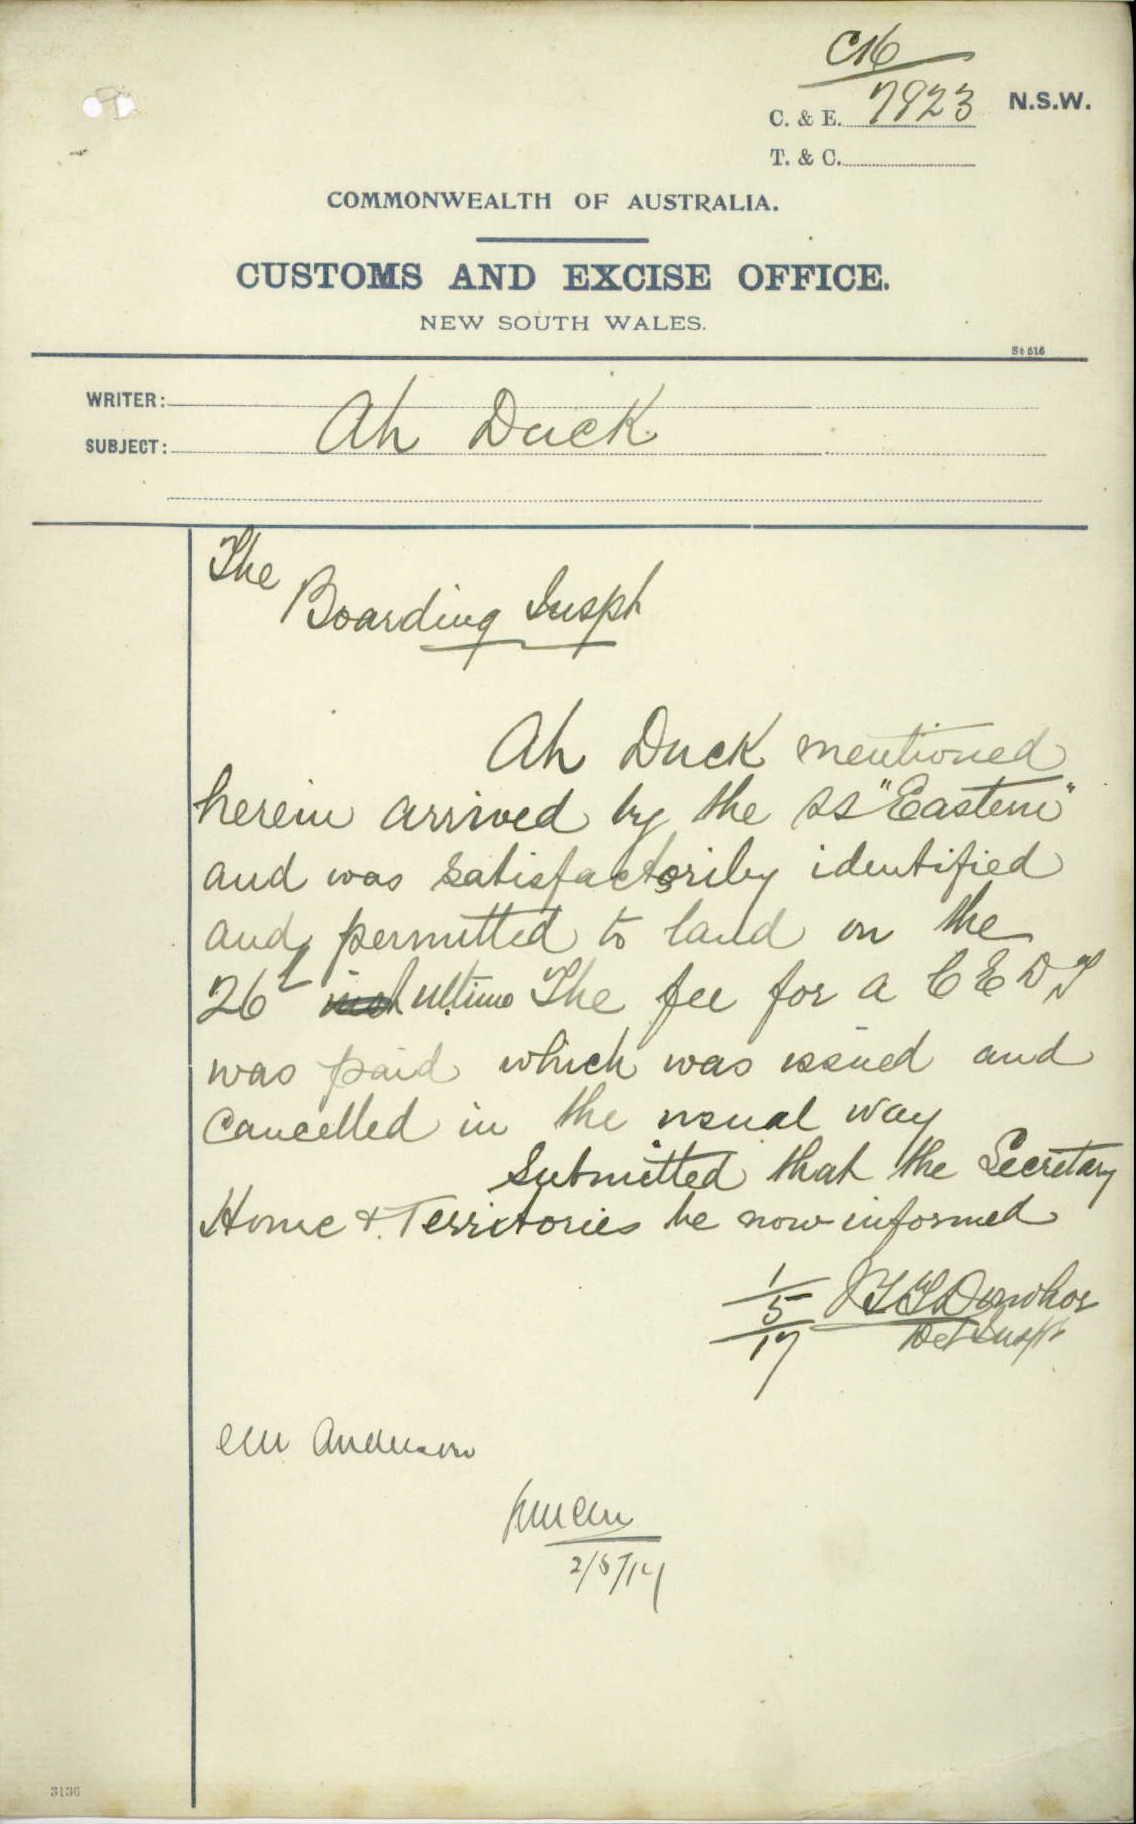 C16
C. & E. 7923 N.S.W.
T. & C.
COMMONWEALTH OF AUSTRALIA.
CUSTOMS AND EXCISE OFFICE.
NEW SOUTH WALES.
St 516
WRITER:
SUBJECT: Ah Duck
The
Boarding Inspr
Ah Duck mentioned
herein arrived by the ss "Eastern"
and was satisfactorily identified
and permitted to land on the
26th inst ultimo The fee for a C E D T
was paid which was issued and
cancelled in the usual way
Submitted that the Secretary
Home & Territories be now informed
1/5/17
Det Inspr
Anderson
2/5/17
3136